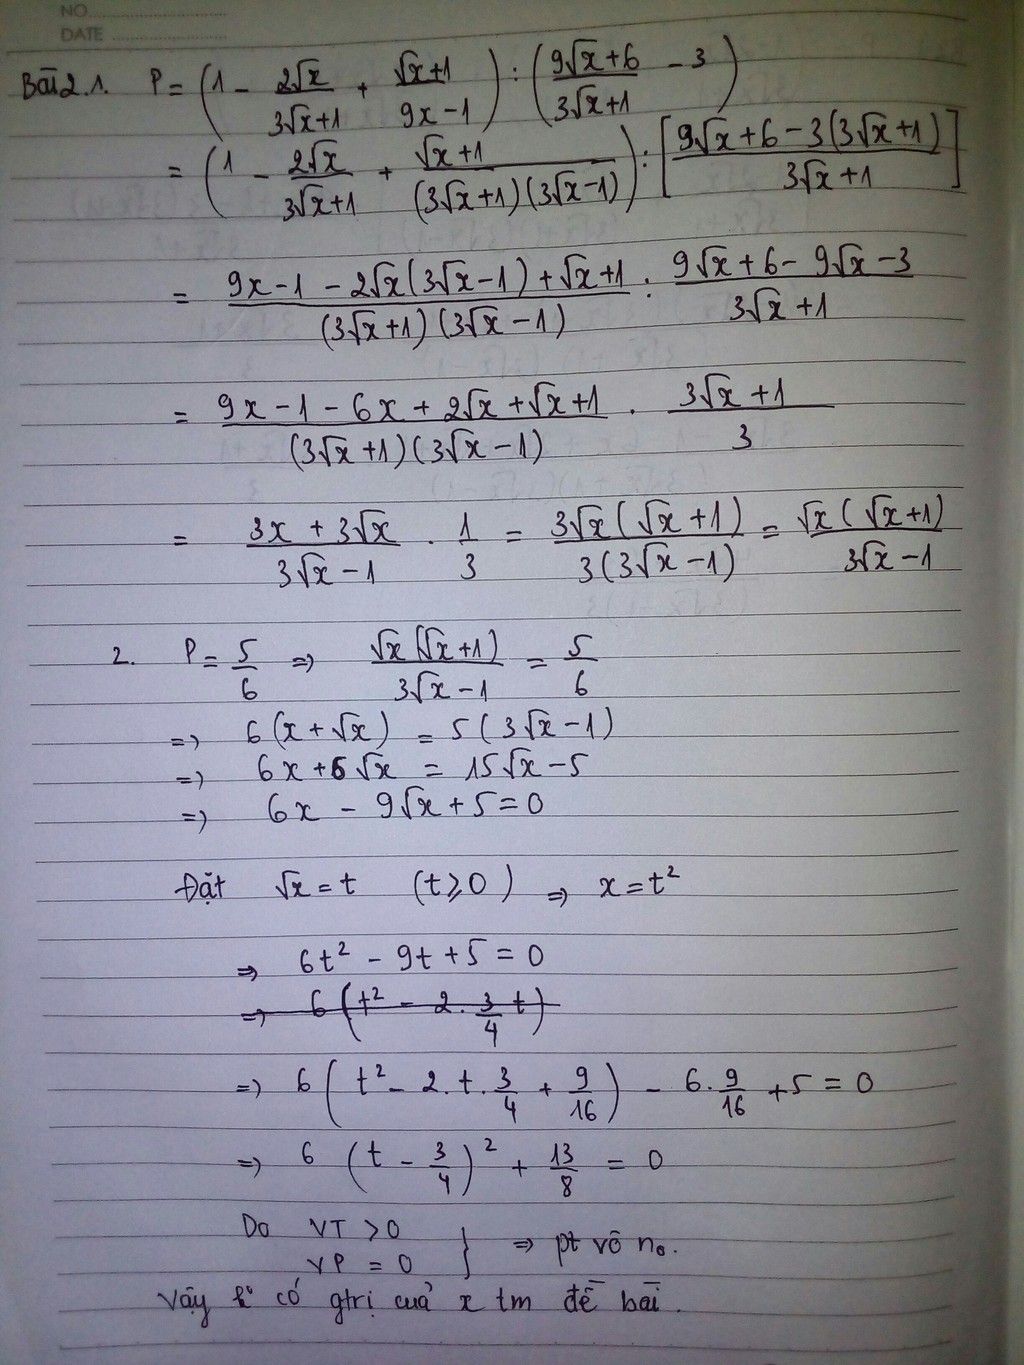 NO.
DATE
Bài 2.1. P = (1 - 2√x/(3√x+1) + (√x+1)/(9x-1)) : ((9√x+6)/(3√x+1) - 3)
= (1 - 2√x/(3√x+1) + (√x+1)/((3√x+1)(3√x-1))) : [(9√x+6-3(3√x+1))/(3√x+1)]
= (9x-1-2√x(3√x-1)+√x+1)/((3√x+1)(3√x-1)) : (9√x+6-9√x-3)/(3√x+1)
= (9x-1-6x+2√x+√x+1)/((3√x+1)(3√x-1)) . (3√x+1)/3
= (3x+3√x)/(3√x-1) . 1/3 = 3√x(√x+1)/(3(3√x-1)) = √x(√x+1)/(3√x-1)
2. P = 5/6 => √x(√x+1)/(3√x-1) = 5/6
=> 6(x+√x) = 5(3√x-1)
=> 6x+6√x = 15√x-5
=> 6x - 9√x+5=0
Đặt √x = t (t⩾0) => x=t²
=> 6t² - 9t+5 = 0
=> 6(t² - 2.3/4 t)
=> 6(t² - 2.t.3/4 + 9/16) - 6.9/16 +5 = 0
=> 6 (t - 3/4)² + 13/8 = 0
Do VT > 0
VP = 0 } => pt vô no.
Vậy k° có gtrị cuả x tm đề bài.